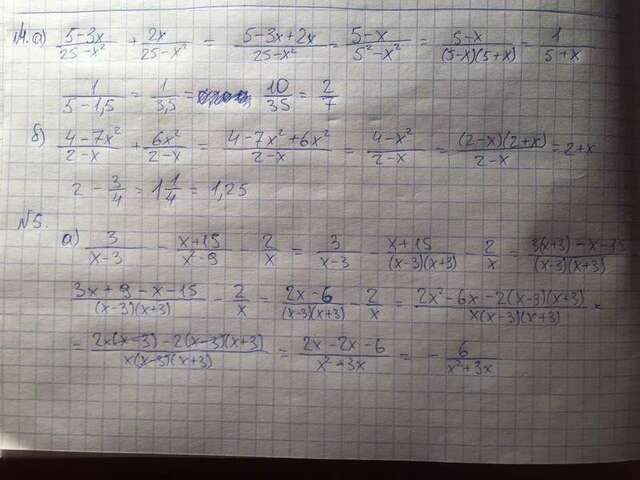 №4. а) (5-3x)/(25-x²) + 2x/(25-x²) = (5-3x+2x)/(25-x²) = (5-x)/(5²-x²) = (5-x)/((5-x)(5+x)) = 1/(5+x)
1/(5-1,5) = 1/3,5 = 10/35 = 2/7
б) (4-7x²)/(2-x) + 6x²/(2-x) = (4-7x²+6x²)/(2-x) = (4-x²)/(2-x) = ((2-x)(2+x))/(2-x) = 2+x
2 - 3/4 = 1 1/4 = 1,25
№5.
а) 3/(x-3) - (x+15)/(x²-9) - 2/x = 3/(x-3) - (x+15)/((x-3)(x+3)) - 2/x = (3(x+3)-x-15)/((x-3)(x+3))
(3x+9-x-15)/((x-3)(x+3)) - 2/x = (2x-6)/((x-3)(x+3)) - 2/x = (2x²-6x-2(x-3)(x+3))/(x(x-3)(x+3)) =
= (2x(x-3)-2(x-3)(x+3))/(x(x-3)(x+3)) = (2x-2x-6)/(x²+3x) = - 6/(x²+3x)